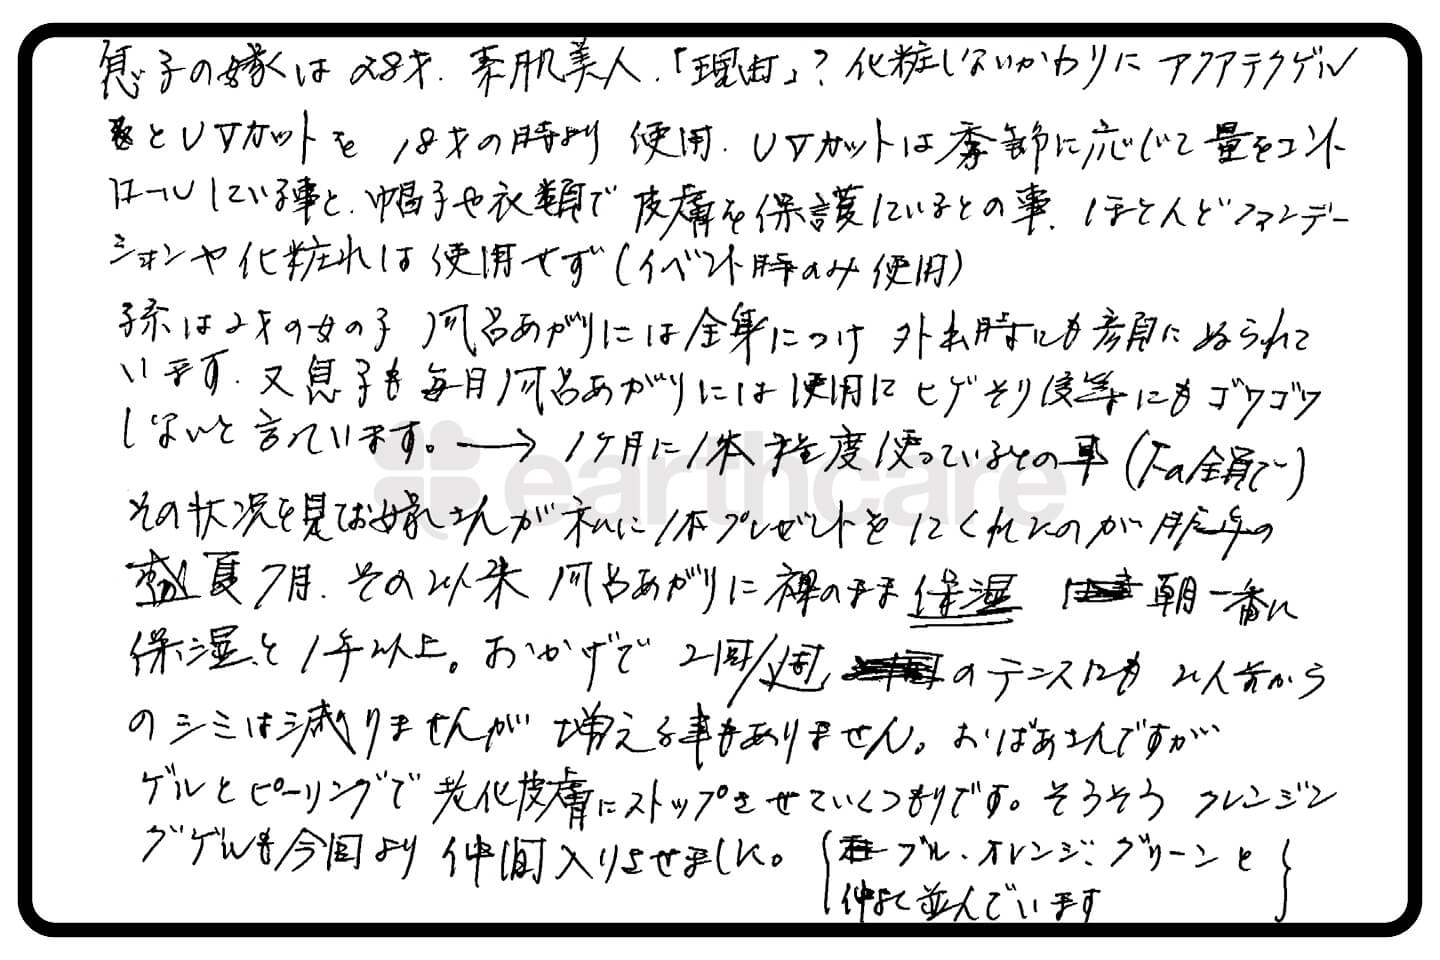 息子の嫁は28才.素肌美人.「理由」?化粧しないかわりにアクアテクゲル
とUVカットを18才の時より使用.UVカットは季節に応じて量をコント
ロールしている事と、帽子や衣類で皮膚を保護しているとの事.ほとんどファンデー
ションや化粧れは使用せず(イベント時のみ使用)
孫は2才の女の子 風呂あがりには全身につけ 外出時にも顔にぬられて
います.又息子も毎日風呂あがりには使用に ヒゲそり後等にもゴワゴワ
しないと言っています。→1ヶ月に1本程度使っているとの事(下の全員で)
earthcare
その状況を見てお嫁さんが私に1本プレゼントをしてくれたのが昨年の
盛夏7月.その以来 風呂あがりに裸のまま保湿 朝一番に
保湿と1年以上。おかげで 2回/週 のテニスにも 以前から
のシミは減りませんが 増える事もありません。おばあさんですが
ゲルとピーリングで老化皮膚にストップさせていくつもりです。そろそろ クレンジン
グゲルも今回より 仲間入りさせました。
{ブルー.オレンジ.グリーンと
仲よく並んでいます}